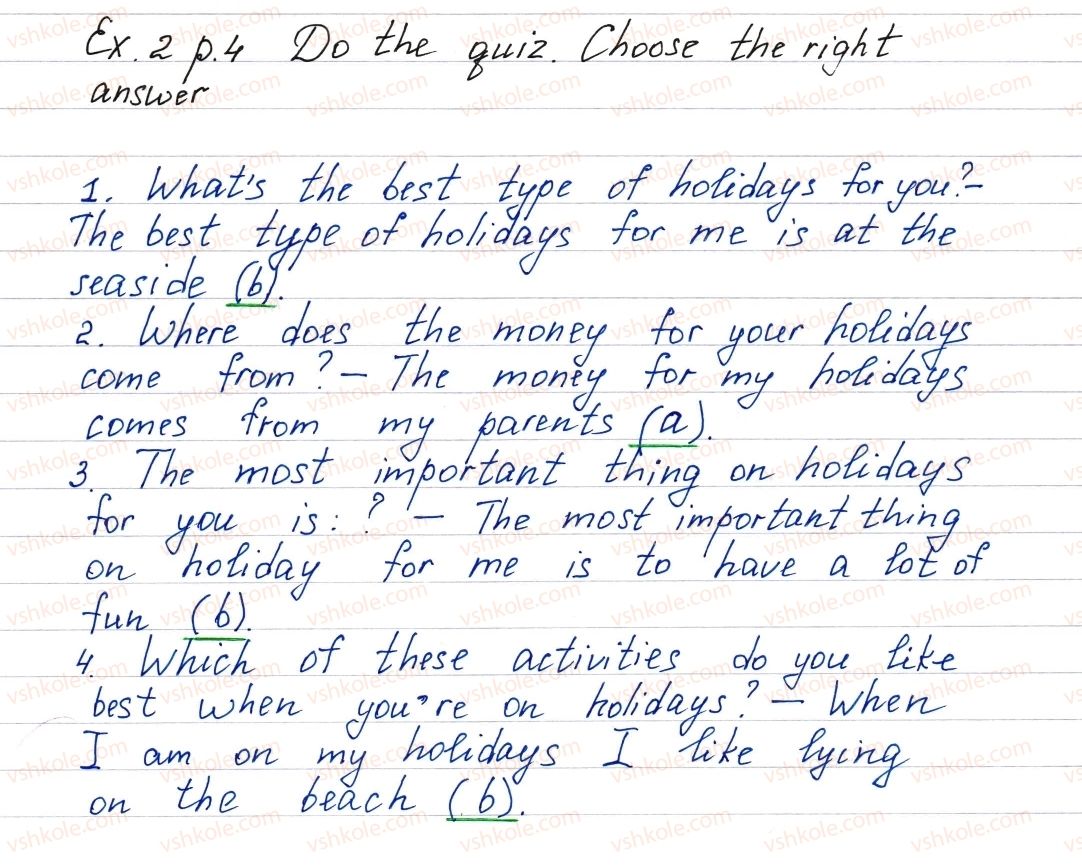 Ex. 2 p.4 Do the quiz. Choose the right
answer
1. What's the best type of holidays for you?–
The best type of holidays for me is at the
seaside (b).
2. Where does the money for your holidays
come from? – The money for my holidays
comes from my parents (a).
3. The most important thing on holidays
for you is: ? – The most important thing
on holiday for me is to have a lot of
fun (b).
4. Which of these activities do you like
best when you're on holidays? – When
I am on my holidays I like lying
on the beach (b).